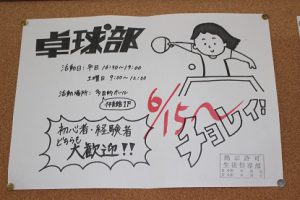 卓球部
活動日：平日 16:30～19:00
土曜日 9:00～12:00
活動場所：多目的ホール
(体育館1F)
6/15～
チョレイ！
初心者・経験者
どちらも
大歓迎!!
掲示許可
生徒指導部